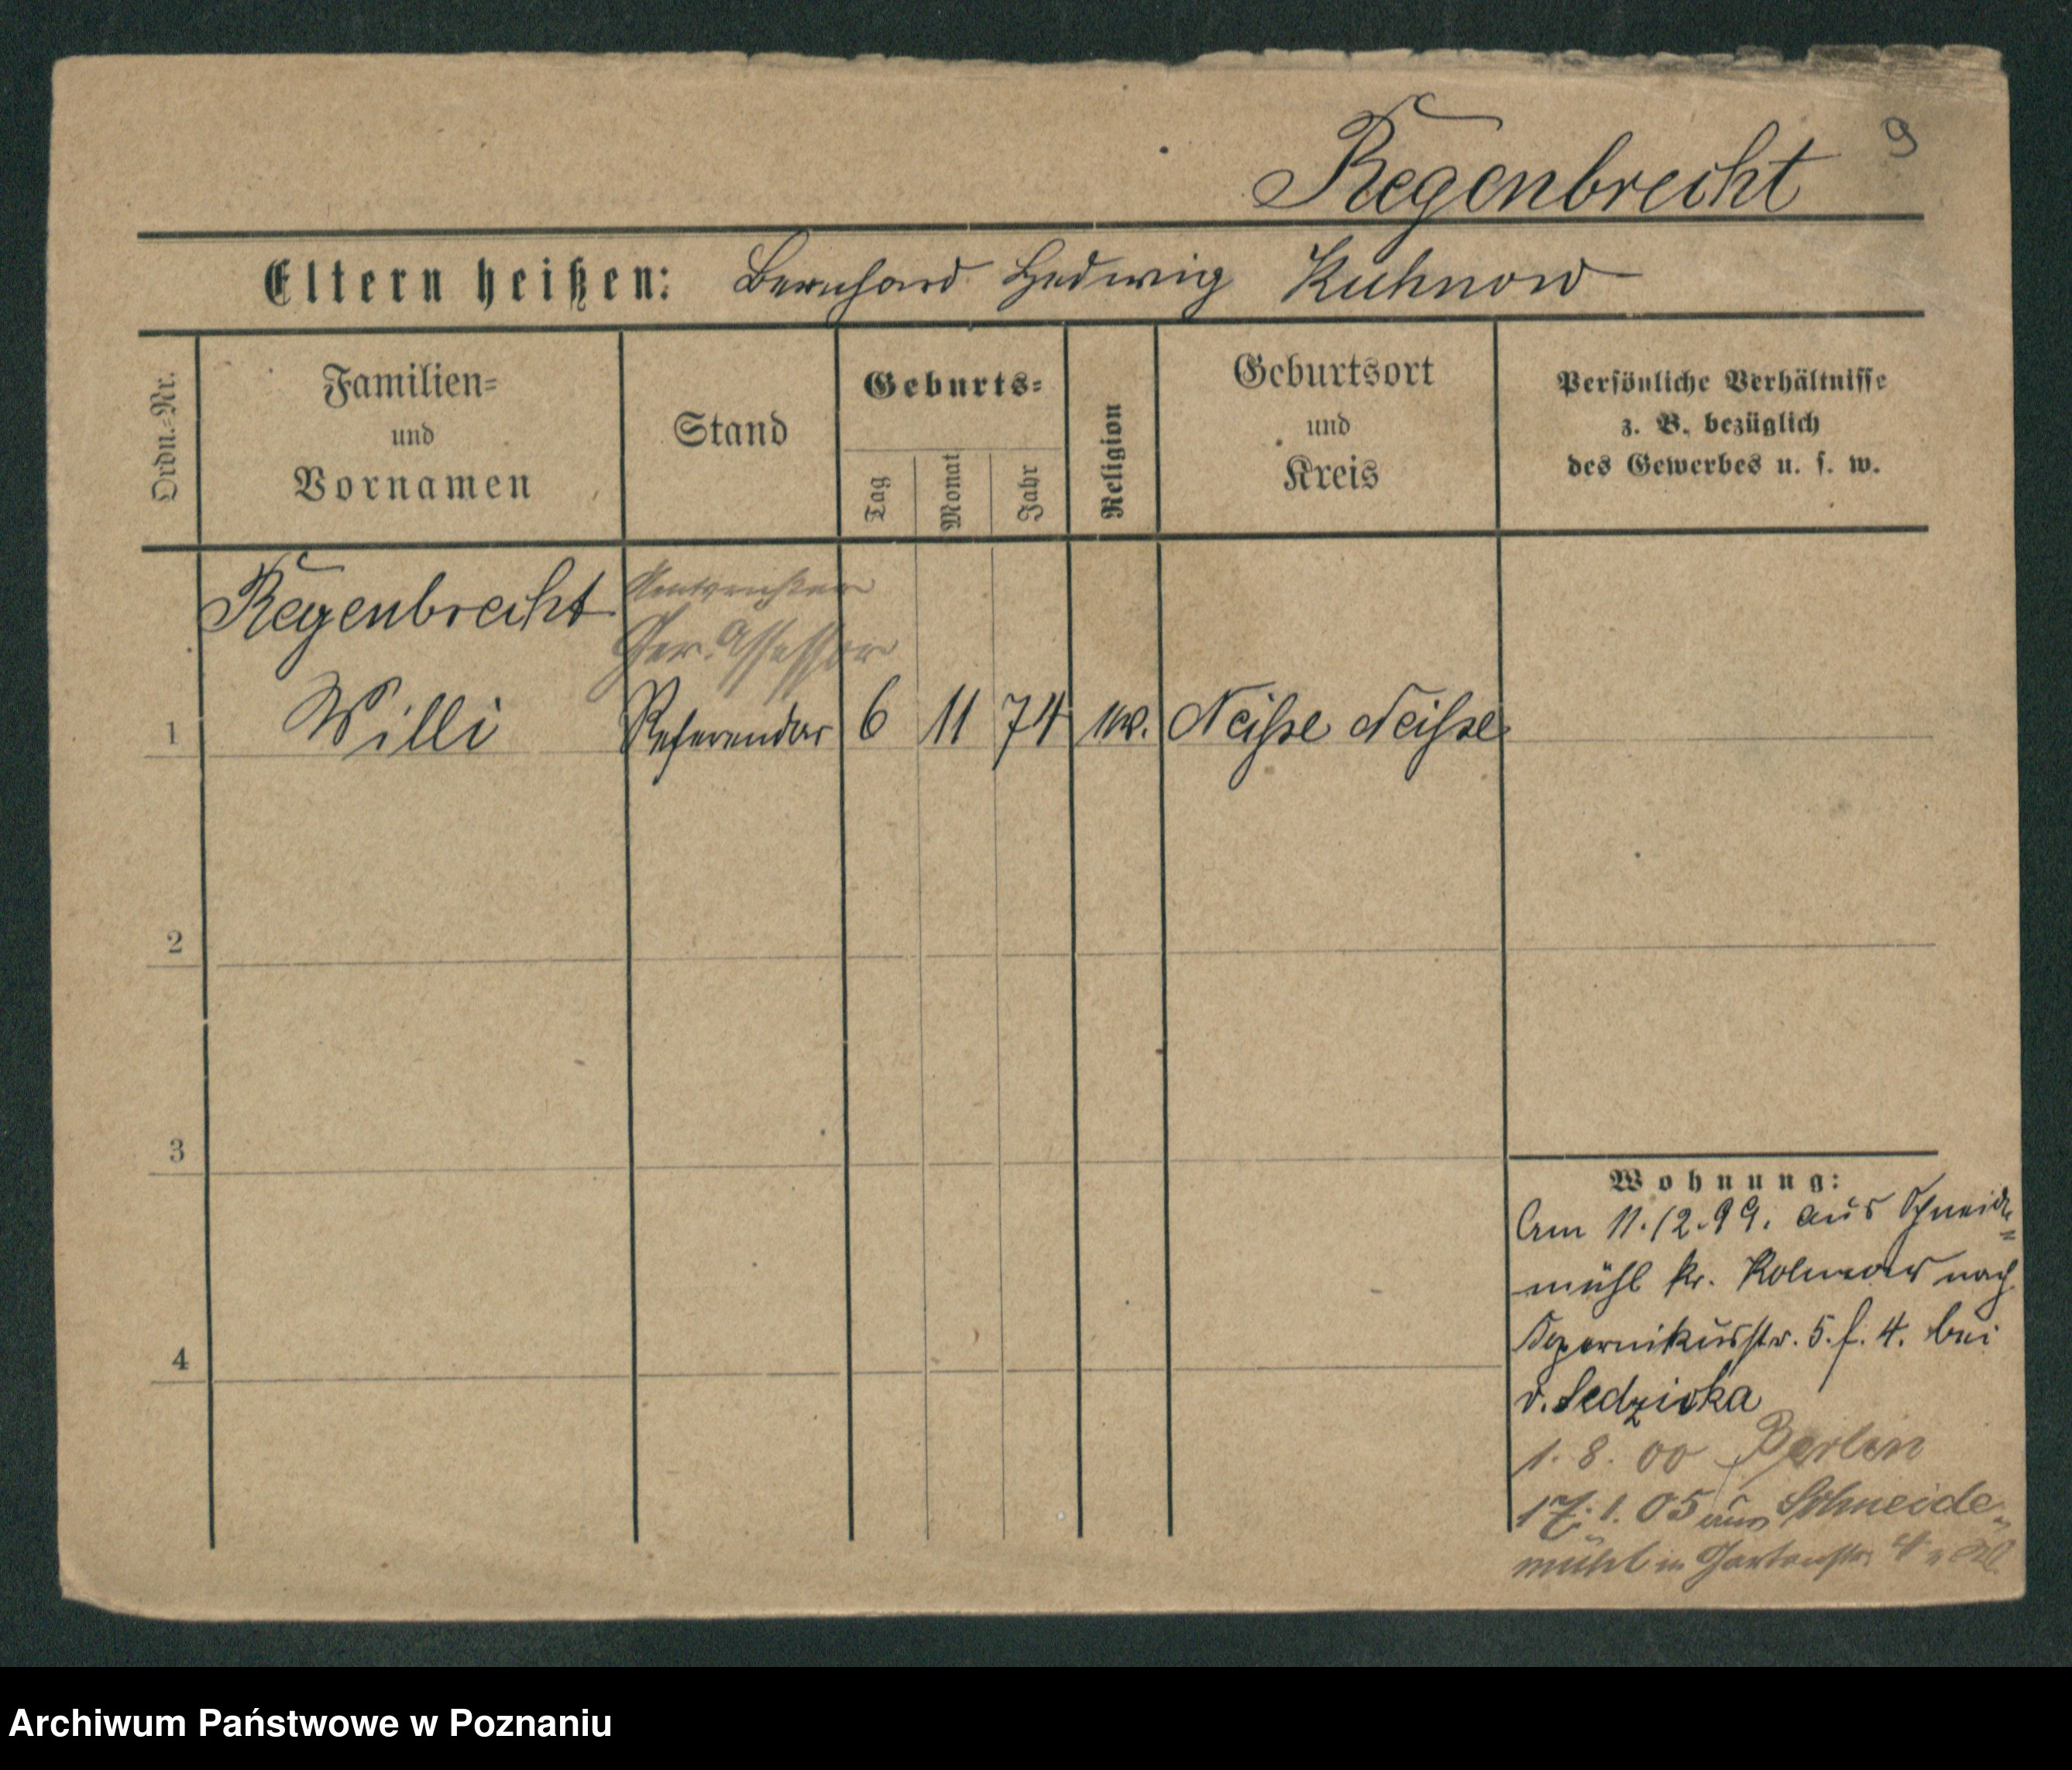 9
Regenbrecht
Eltern heißen: Bernhard Hedwig Kuhnow
Ordn.-Nr.
Familien-
und
Vornamen
Stand
Geburts-
Tag
Monat
Jahr
Religion
Geburtsort
und
Kreis
Persönliche Verhältnisse
z. B. bezüglich
des Gewerbes u. s. w.
Regenbrecht
Amtsrichter
Ger. Assessor
1 Willi Referendar 6 11 74 Neiße Neiße
2
3
4
Wohnung:
Am 11.12.99. aus Schneide=
mühl Kr. Kolmar nach
Kopernikusstr. 5. f. 4. bei
v. Sedzicka
1. 8. 00 Berlin
17. 1. 05 aus Schneide-
mühl in Gartenstr. 4
Archiwum Państwowe w Poznaniu